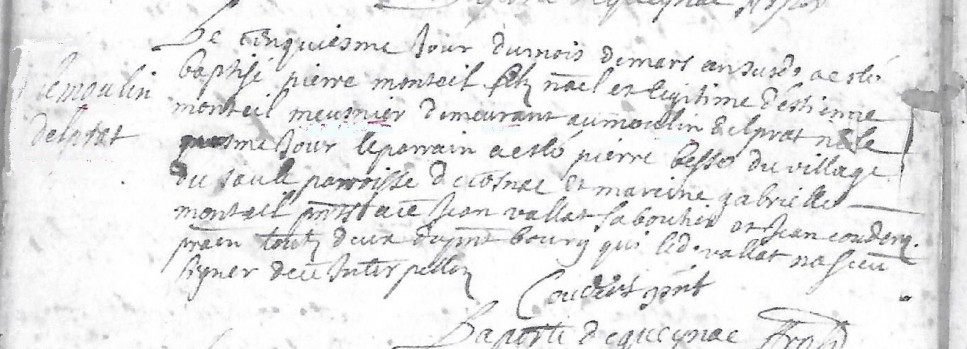 Le cinquiesme Jour du mois de mars an susd a esté
baptisé pierre monteil filz nãel et legitime d'estienne
monteil meusnier demeurant au moulin delprat né le
mesme Jour le parrain a esté pierre besse du village
du saule parroisse de cosnac et mareine gabrielle
monteil pnts a ce Jean vallat laboureur et Jean couderq
praen touts deux du pnt bourg qui led vallat na sceu
signer de ce Interpellé
le moulin
delprat
Couderc pnt
Laporte de queynac